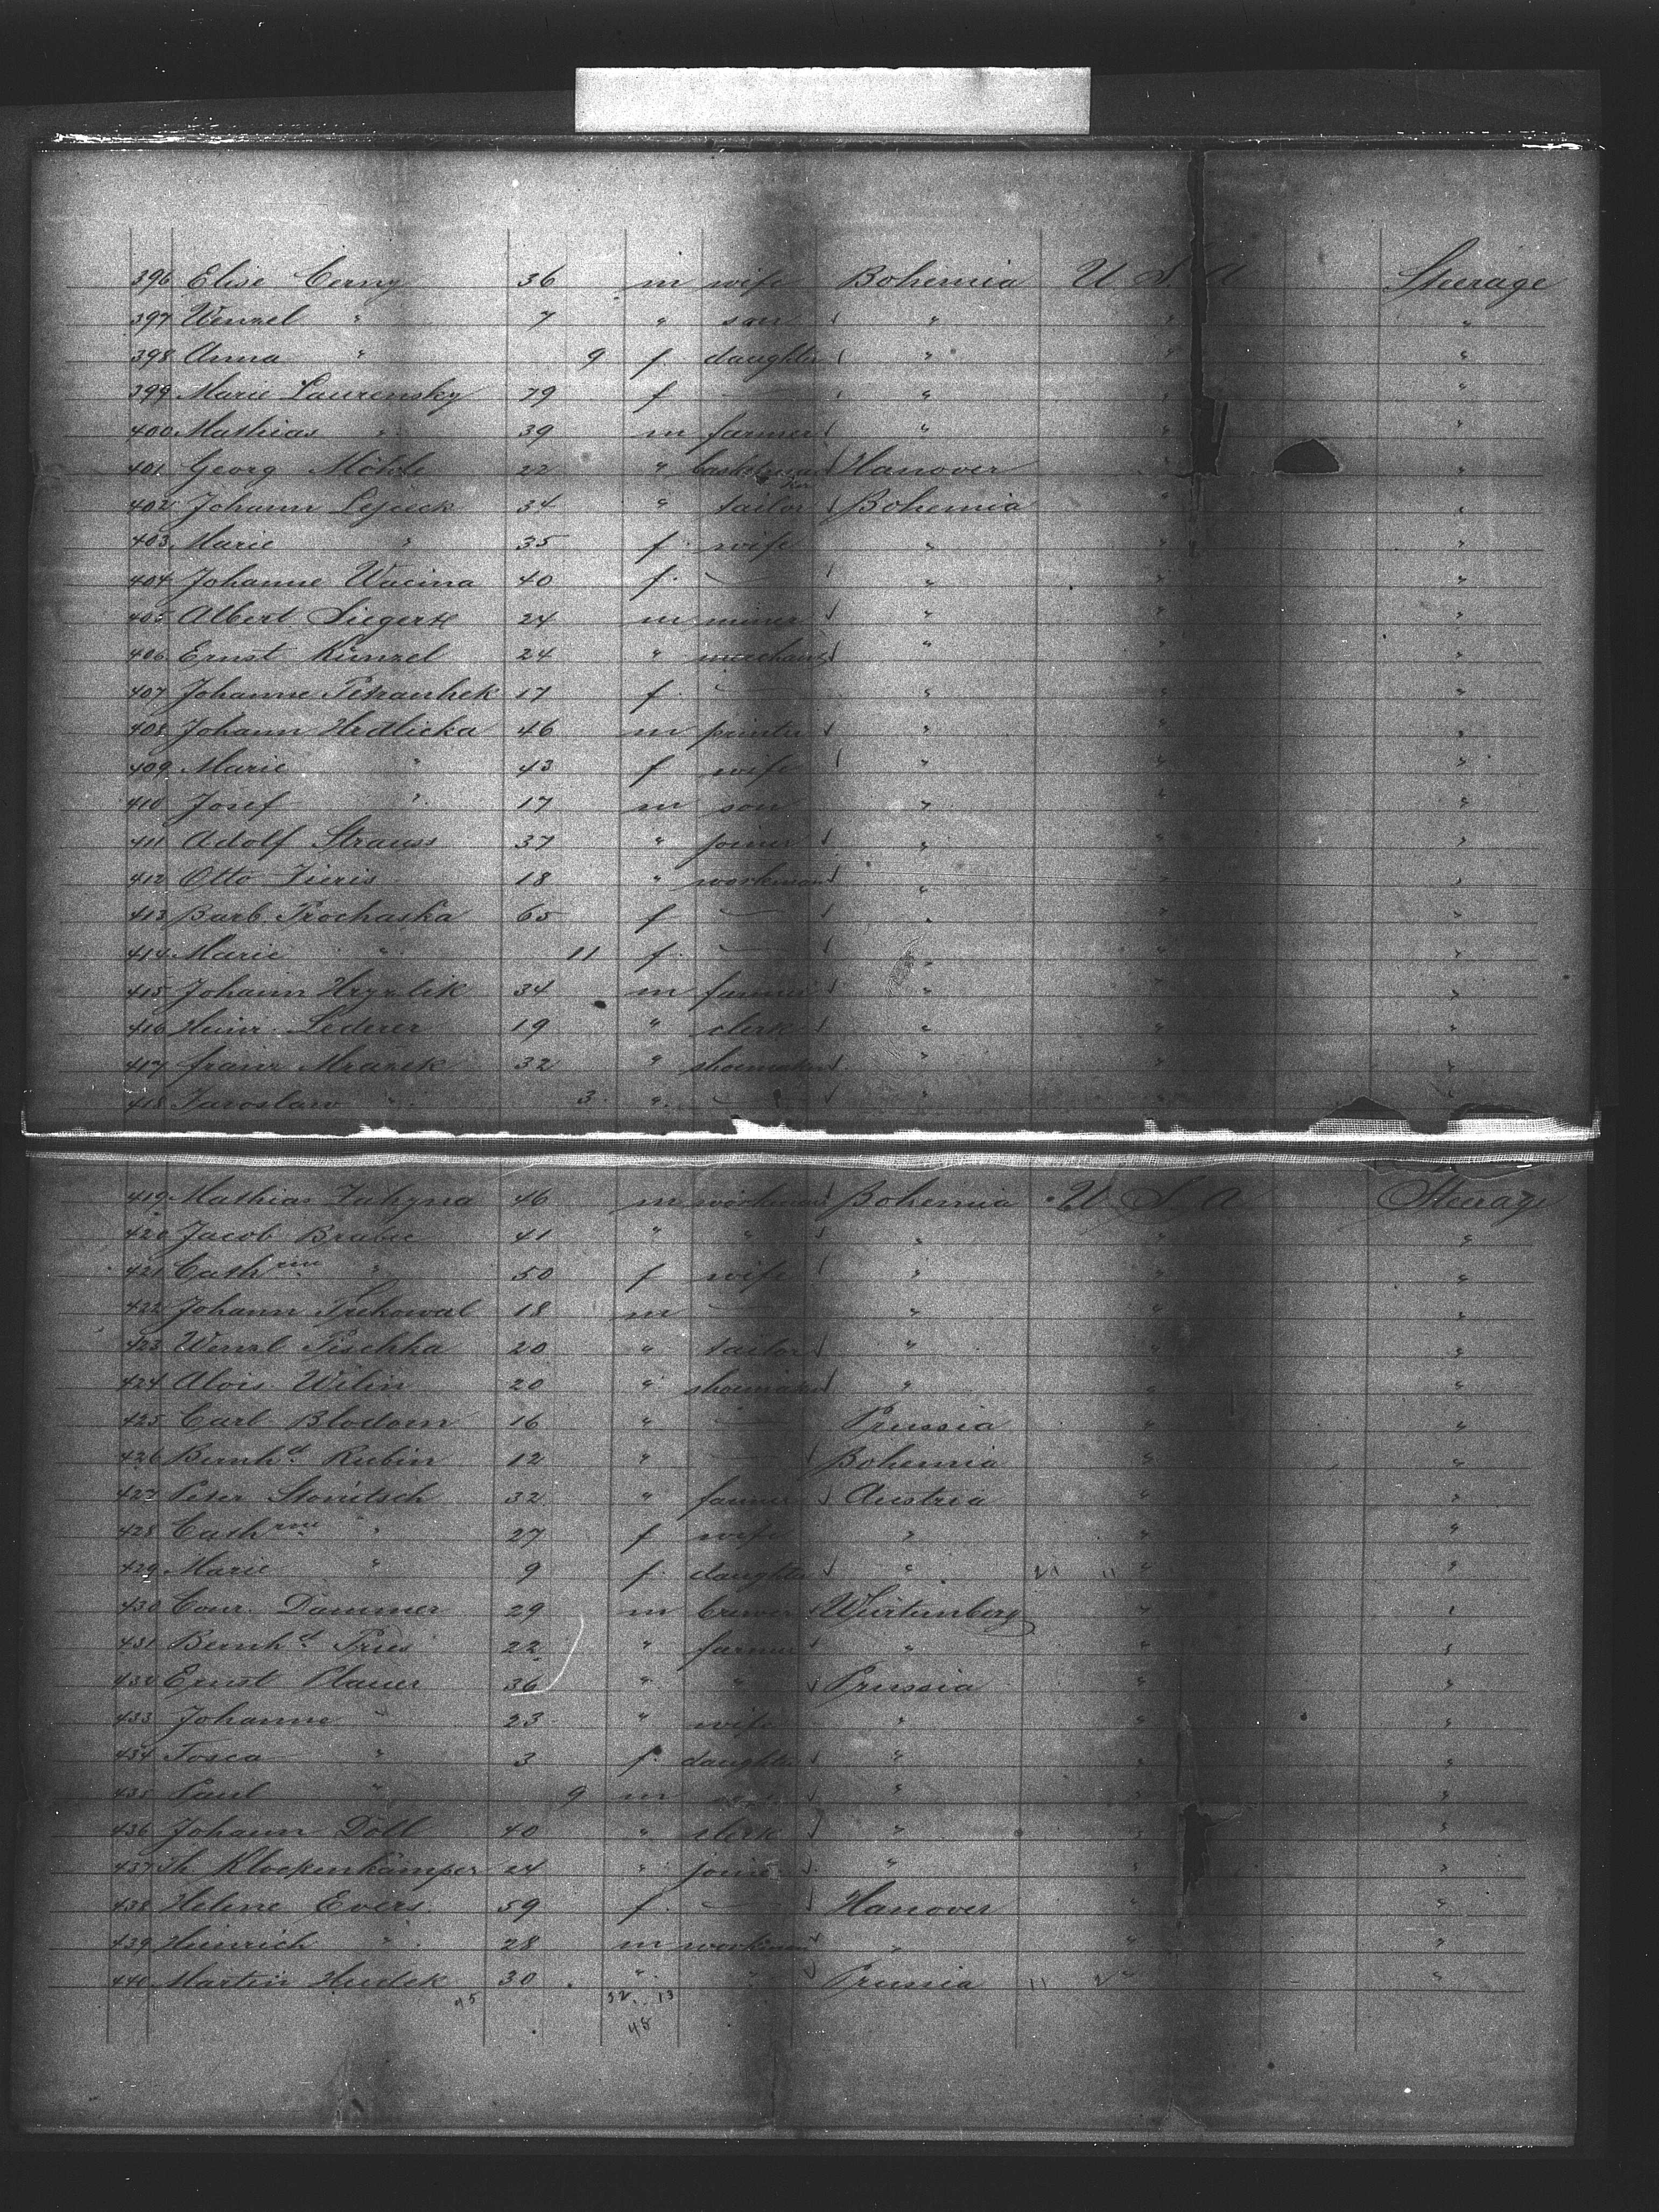 396 Elise Cerny 36 m wife Bohemia U S A Steerage
397 Wenzel " 7 " son " " "
398 Anna " 9 f. daughter " " "
399 Marie Laurensky 79 f — " " "
400 Mathias " 39 m farmer " " "
401 Georg Möhle 22 " Hanover " "
402 Johann Lejseck 34 " tailor Bohemia " "
403 Marie " 35 f. wife " " "
404 Johanne Wacina 40 f. — " " "
405 Albert Siegert 24 m miner " " "
406 Ernst Künzel 24 " merchant " " "
407 Johanne 17 f. — " " "
408 Johann Hrdlicka 46 m printer " " "
409 Marie " 43 f wife " " "
410 Josef " 17 m son " " "
411 Adolf Strauss 37 " joiner " " "
412 Otto 18 " workman " " "
413 Barb. Prochaska 65 f — " " "
414 Marie " 11 f. — " " "
415 Johann 34 m farmer " " "
416 Heinr. Lederer 19 " clerk " " "
417 Franz Mrazek 32 " shoemaker " " "
418 Jaroslaw " 3 " — " " "
419 Mathias 46 m workman Bohemia U S A Steerage
420 Jacob Brabec 41 " " " " "
421 Cathrine " 50 f wife " " "
422 Johann 18 m — " " "
423 Wenzl Pischka 20 " tailor " " "
424 Alois Wilin 20 " shoemaker " " "
425 Carl Blodorn 16 " — Prussia " "
426 Bernhd. Rubin 12 " — Bohemia " "
427 Peter Stonitsch 32 " farmer Austria " "
428 Cathrine " 27 f wife " " "
429 Marie " 9 f. daughter " " "
430 Conr. Dammer 29 m brewer Würtemberg " "
431 Bernhd. Pries 22 " farmer " " "
432 Ernst Plauer 36 " " Prussia " "
433 Johanne " 23 " wife " " "
434 Tosca " 3 f. daughter " " "
435 Paul " 9 m son " " "
436 Johann Döll 40 " clerk " " "
437 Th. Klockenkämper 24 " joiner " " "
438 Helene Evers 59 f. — Hanover " "
439 Heinrich " 28 m workman " " "
440 Martin Hudek 30 " " Prussia " "
45 32 13
45